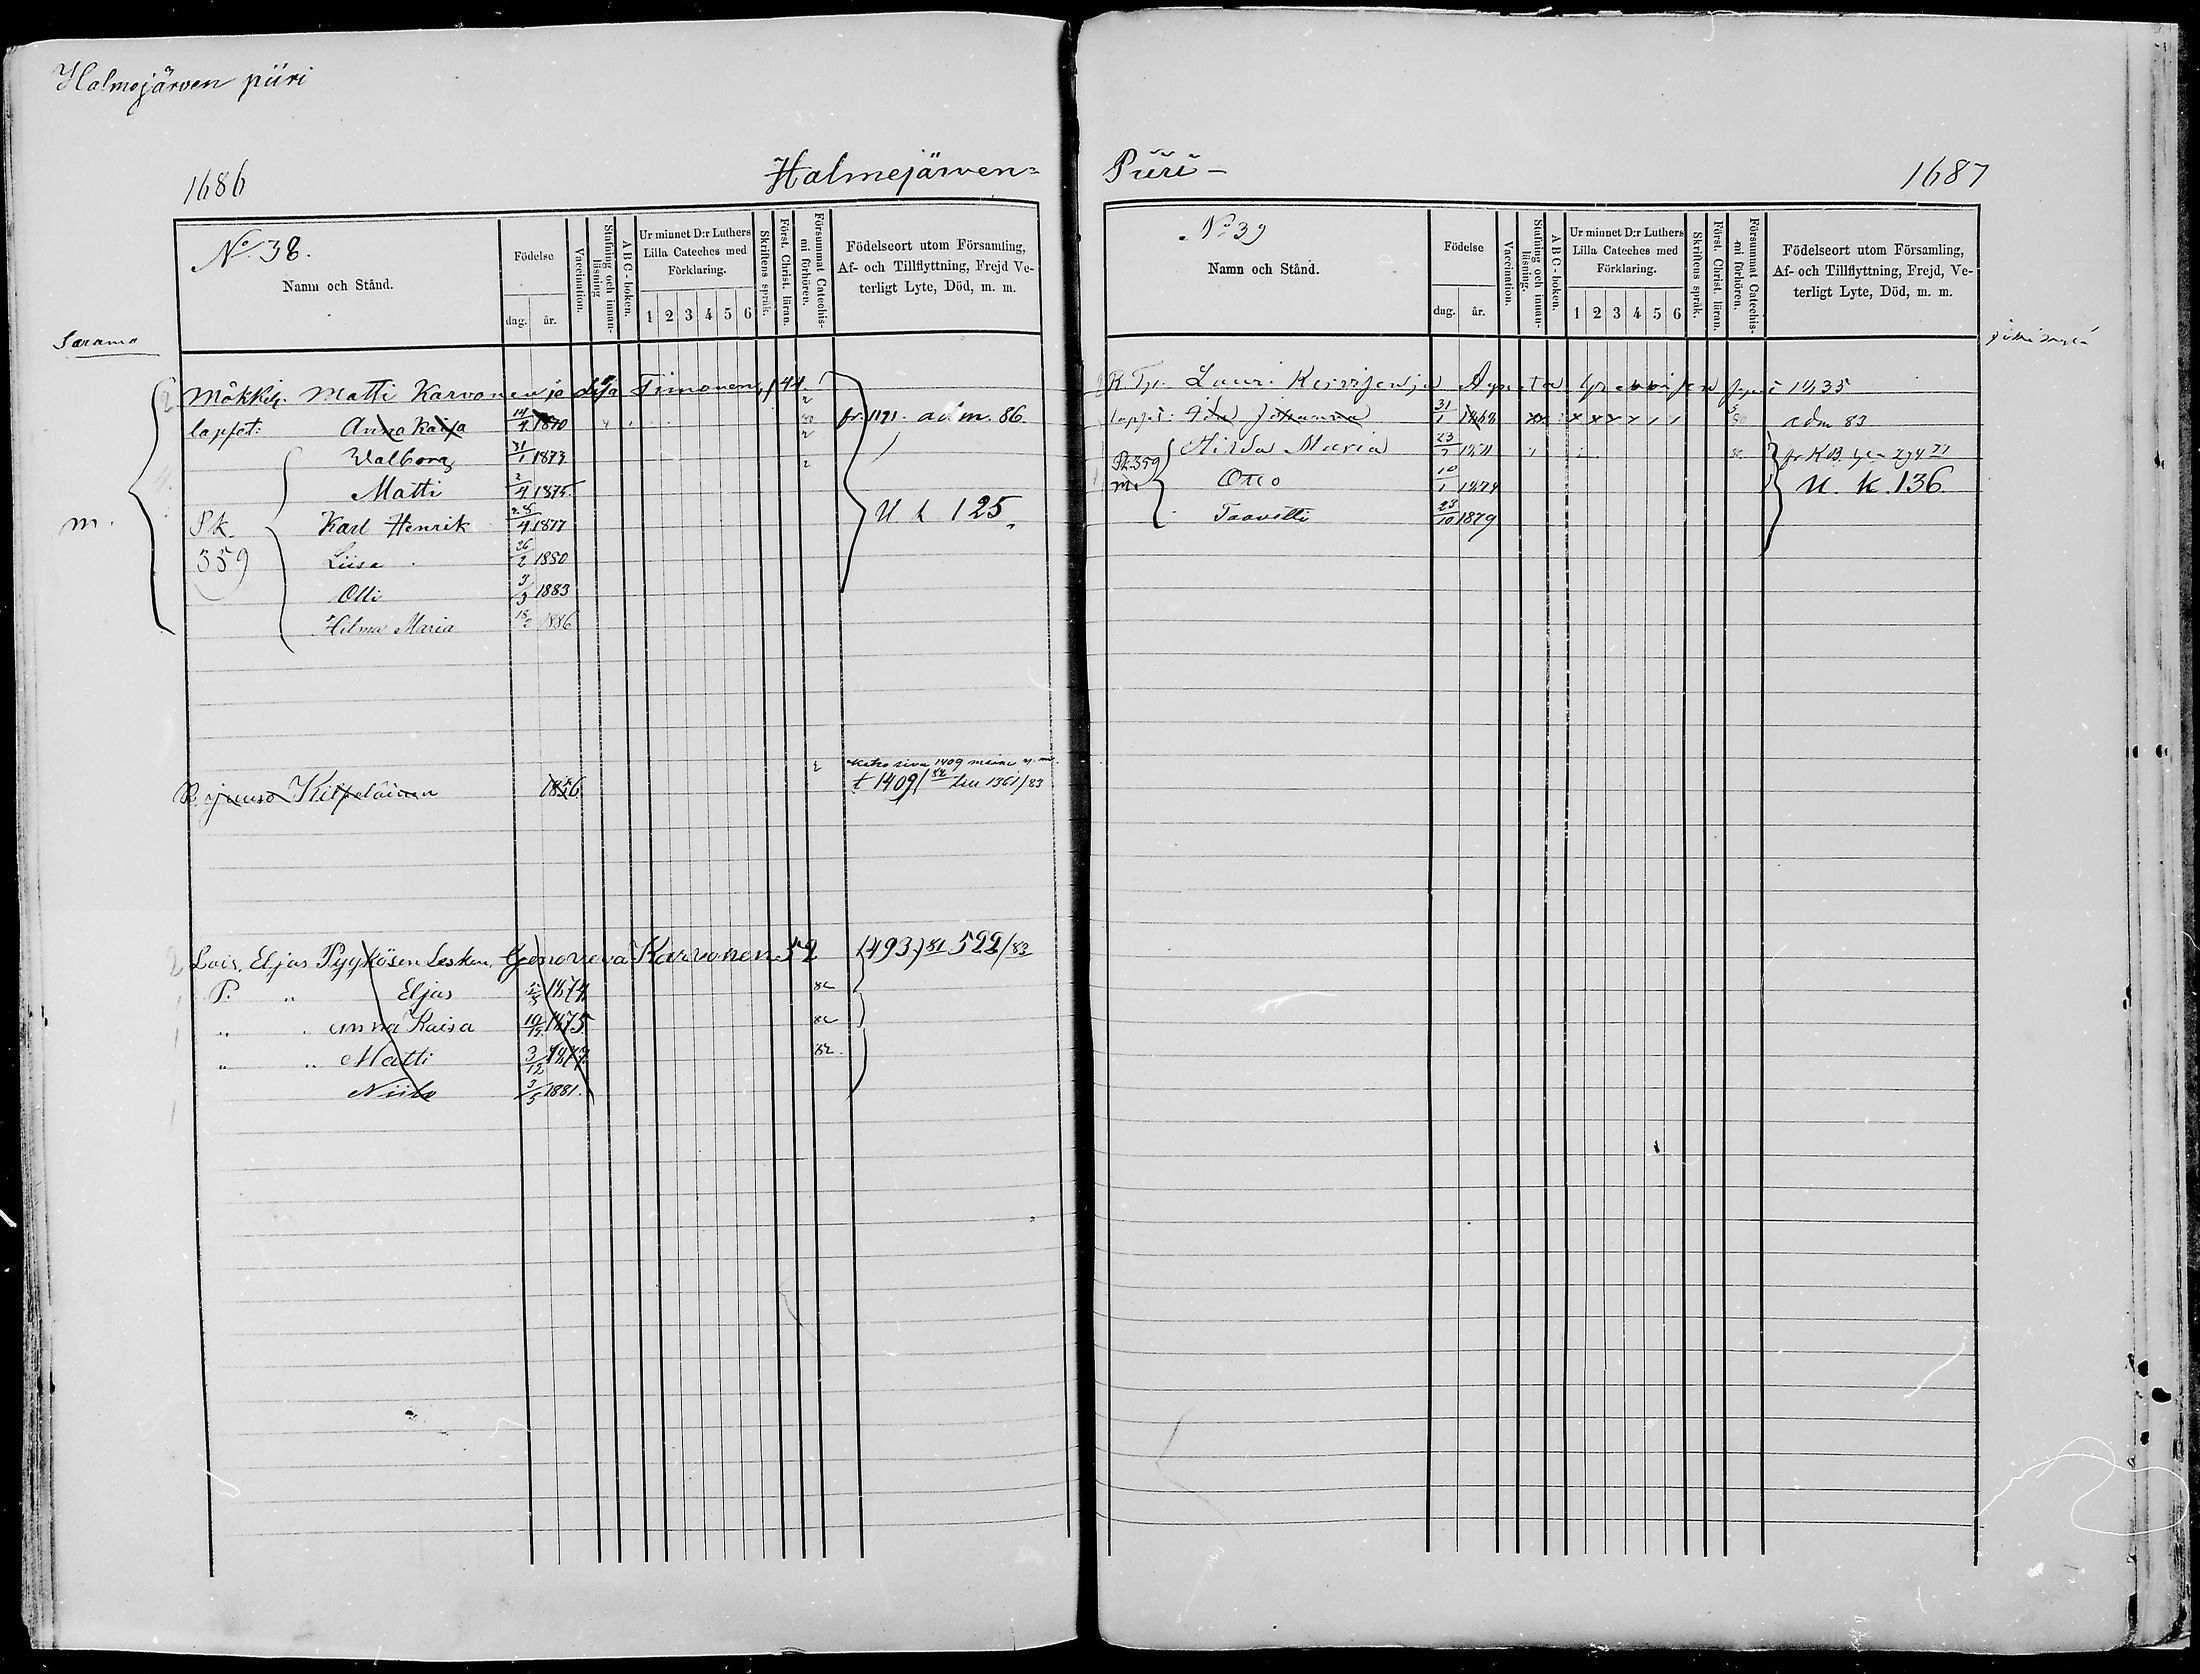 Halmejärven piiri
1686
Halmejärven=
N:o 38.
Namn och Stånd.
Födelse
dag. år.
Vaccination.
Stafning och innanläsning
ABC-boken.
Ur minnet D:r Luthers Lilla Cateches med Förklaring.
1 2 3 4 5 6
Skriftens språk.
Först. Christ. läran.
Försummat Catechismi förhören.
Födelseort utom Församling, Af- och Tillflyttning, Frejd Veterligt Lyte, Död, m. m.
Sarama
Mökkil. Matti Karvonen ja Liisa Timonen 44.
lapset: Anna Kaisa 14/4 1870 fr. 1121. adm. 86.
Walborg 31/1 1873
Matti 2/4 1875
m. Sk. Karl Henrik 28/4 1877 U k 125
359 Liisa 26/2 1880
Otti 3/3 1883
Hilma Maria 1886
R. Juuso Kilpeläinen 1836 t 1409/82 1361/83
Lois. Eljas Pyykösen Lesken Genoveva Karvonen 52 1493/81 522/83
P. " Eljas 5/5 1874 82
" " Anna Kaisa 10/12 1875 82
" " Matti 3/12 1877 82
Niilo 3/5 1881.
Piiri –
1687
N:o 39
Namn och Stånd.
Födelse
dag. år.
Vaccination.
Stafning och innanläsning.
ABC-boken.
Ur minnet D:r Luthers Lilla Cateches med Förklaring.
1 2 3 4 5 6
Skriftens språk.
Först. Christ. läran.
Försummat Catechismi förhören.
Födelseort utom Församling, Af- och Tillflyttning, Frejd, Veterligt Lyte, Död, m. m.
Lauri 1435
lapset: Ida Johanna 31/1 1868 xx x x x x / / adm 83
Hilda Maria 23
Pk. 359 Otto 10/1 1874 U. k. 136
m. Taavetti 23/10 1879